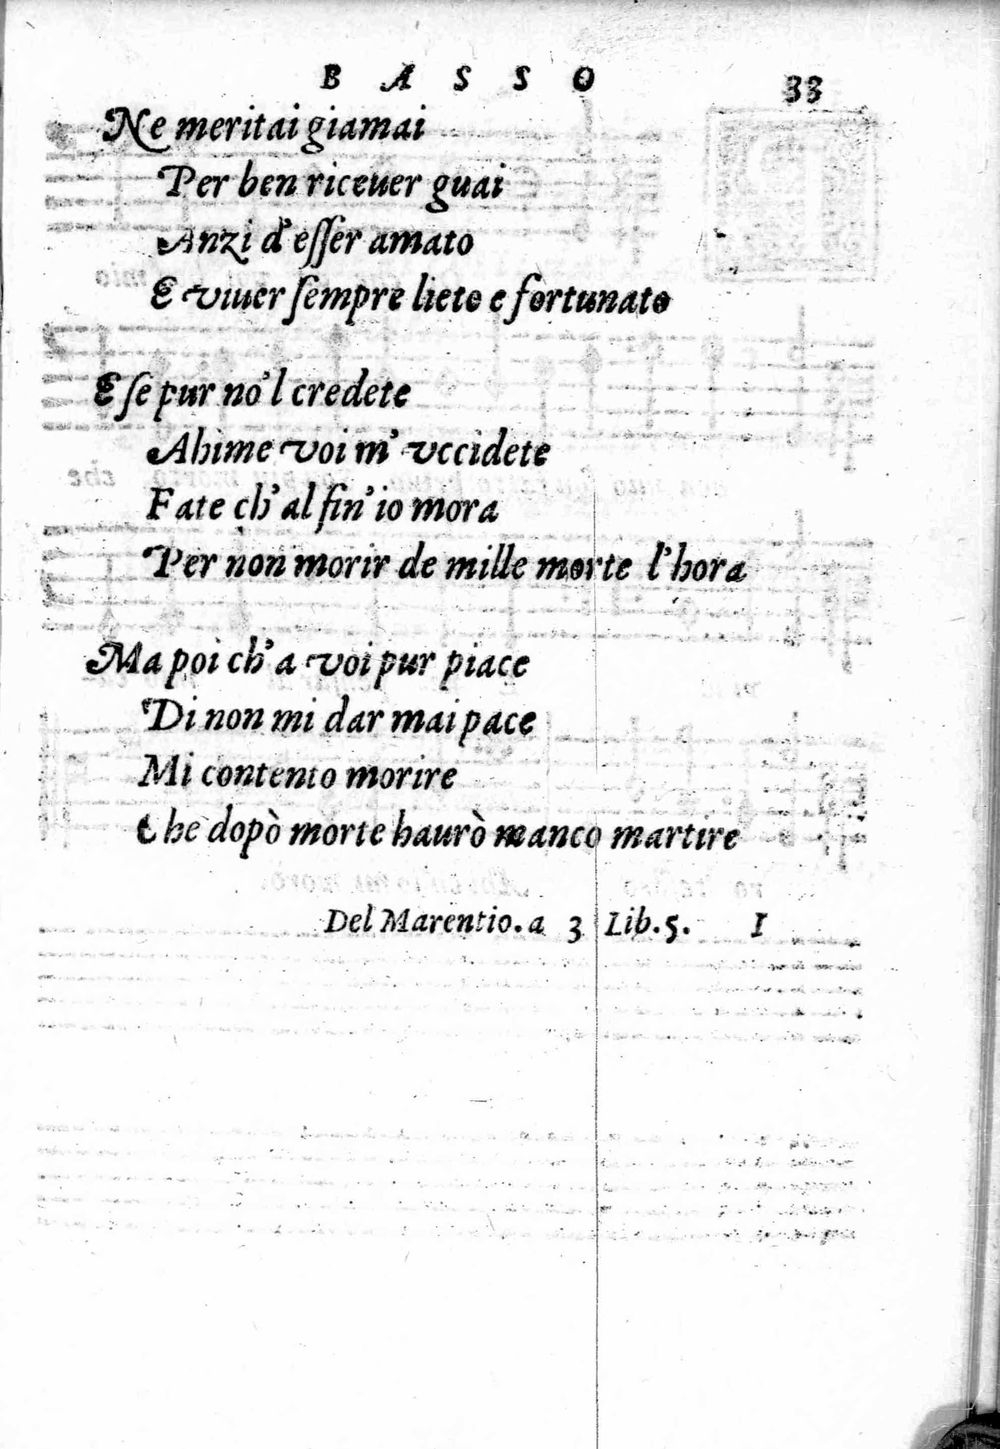 BASSO 33
Ne meritai giamai
Per ben riceuer guai
Anzi d'eſſer amato
E viuer ſempre lieto e fortunato
E ſe pur no'l credete
Ahime voi m' vccidete
Fate ch'al fin'io mora
Per non morir de mille morte l'hora
Ma poi ch'a voi pur piace
Di non mi dar mai pace
Mi contento morire
Che dopò morte haurò manco martire
Del Marentio. a 3 Lib. 5. I